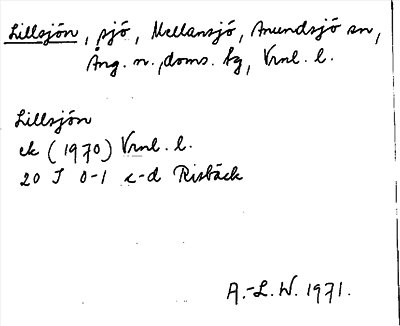 Lillsjön, sjö, Mellansjö, Anundsjö sn,
Ång. n., doms. bg, Vrnl. l.
Lillsjön
ek (1970) Vrnl. l.
20 J 0-1 c-d Risbäck
A.-L. W. 1971.